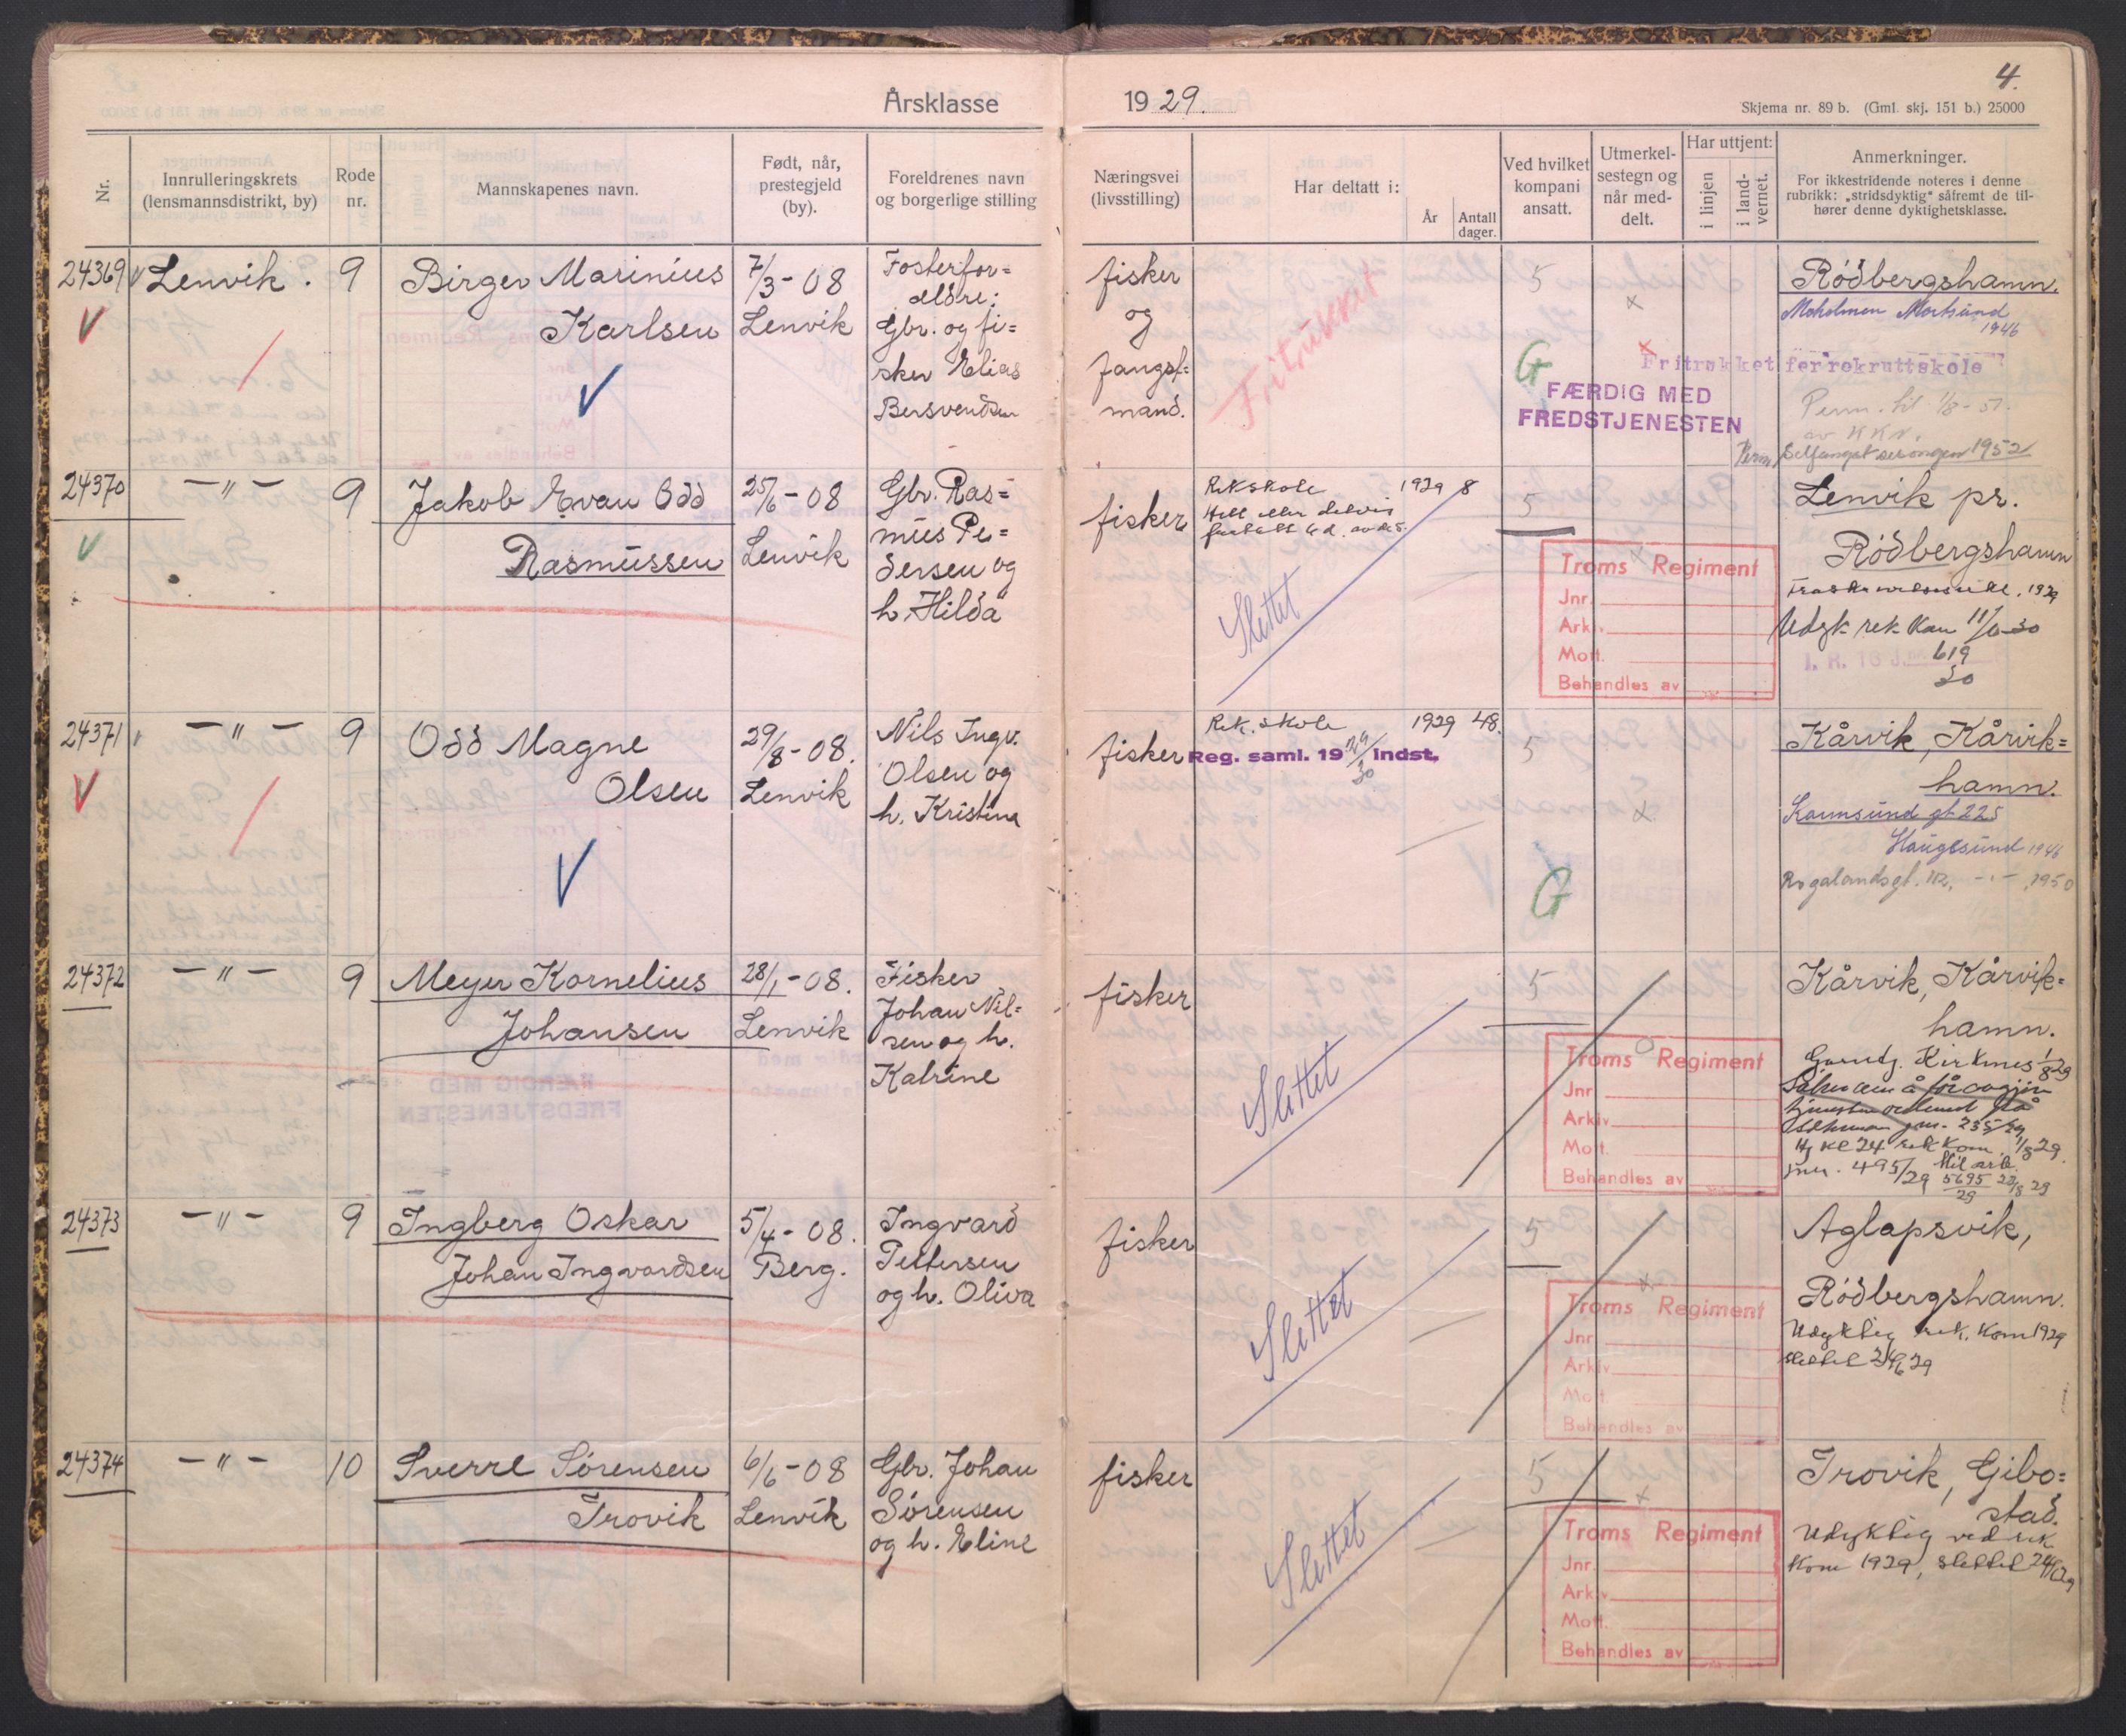 Årsklasse
1929.
4.
Skjema nr. 89 b. (Gml. skj. 151 b.) 25000
Nr.
Innrulleringskrets
(lensmannsdistrikt, by)
Rode
nr.
Mannskapenes navn.
Født, når,
prestegjeld
(by).
Foreldrenes navn
og borgerlige stilling
Næringsvei
(livsstilling)
Har deltatt i:
År
Antall
dager.
Ved hvilket
kompani
ansatt.
Utmerkel-
sestegn og
når med-
delt.
Har uttjent:
i linjen
i land-
vernet.
Anmerkninger.
For ikkestridende noteres i denne
rubrikk: „stridsdyktig“ såfremt de til-
hører denne dyktighetsklasse.
24369
Lenvik.
9
Birger Marinius
Karlsen
7/3-08
Lenvik
Fosterfor=
ældre:
Gbr. og fi=
sker Elias
Bersvendsen
fisker
og
fangst=
mand.
Fritrukket
5
G
Fritrukket for rekruttskole
FÆRDIG MED
FREDSTJENESTEN
Rødbergshamn.
1946
Perm. til 1/8-51.
av KKN.
Perm. Selfangstsesongen 1952
24370
—〃—
9
Jakob Evan Odd
Rasmussen
25/6-08
Lenvik
Gbr. Ras=
mus Pe=
dersen og
h. Hilda
fisker
Rekskole 1929 8
Helt eller delvis
Slettet
5
Troms Regiment
Jnr.
Arkiv
Mott.
Behandles av
Lenvik pr.
Rødbergshamn
1929
Udyk rek. Kom 11/6-30
I. R. 16 J.nr. 619
30
24371
—〃—
9
Odd Magne
Olsen
29/8-08.
Lenvik
Nils Ingv.
Olsen og
h. Kristina
fisker
Rek. skole 1929 48.
Reg. saml. 1929/30 indst.
5
G
Kårvik, Kårvik=
hamn.
Karmsund gt 225
Haugesund 1946
Rogalandsgt. 112, -〃- 1950
24372
—〃—
9
Meyer Kornelius
Johansen
28/1-08.
Lenvik
Fisker
Johan Nil=
sen og h.
Katrine
fisker
Slettet
5
Troms Regiment
Jnr.
Arkiv
Mott.
Behandles av
Kårvik, Kårvik=
hamn.
Kirkenes 1/8 29
jnr. 495/29
5695 23/8 29
29
24373
—〃—
9
Ingberg Oskar
Johan Ingvardsen
5/4-08.
Berg.
Ingvard
Pettersen
og h. Oliva
fisker
Slettet
5
Troms Regiment
Jnr.
Arkiv
Mott
Behandles av
Aglapsvik,
Rødbergshamn.
Udyktig rek. Kom 1929
slettet 24/6 29
24374
—〃—
10
Sverre Sørensen
Trovik
6/6-08
Lenvik
Gbr. Johan
Sørensen
og h. Eline
fisker
Slettet
5
Troms Regiment
Jnr.
Arkiv
Mott.
Behandles av
Trovik, Gibo=
stad.
Udyktig ved rek
Kom 1929, slettet 24/6 29